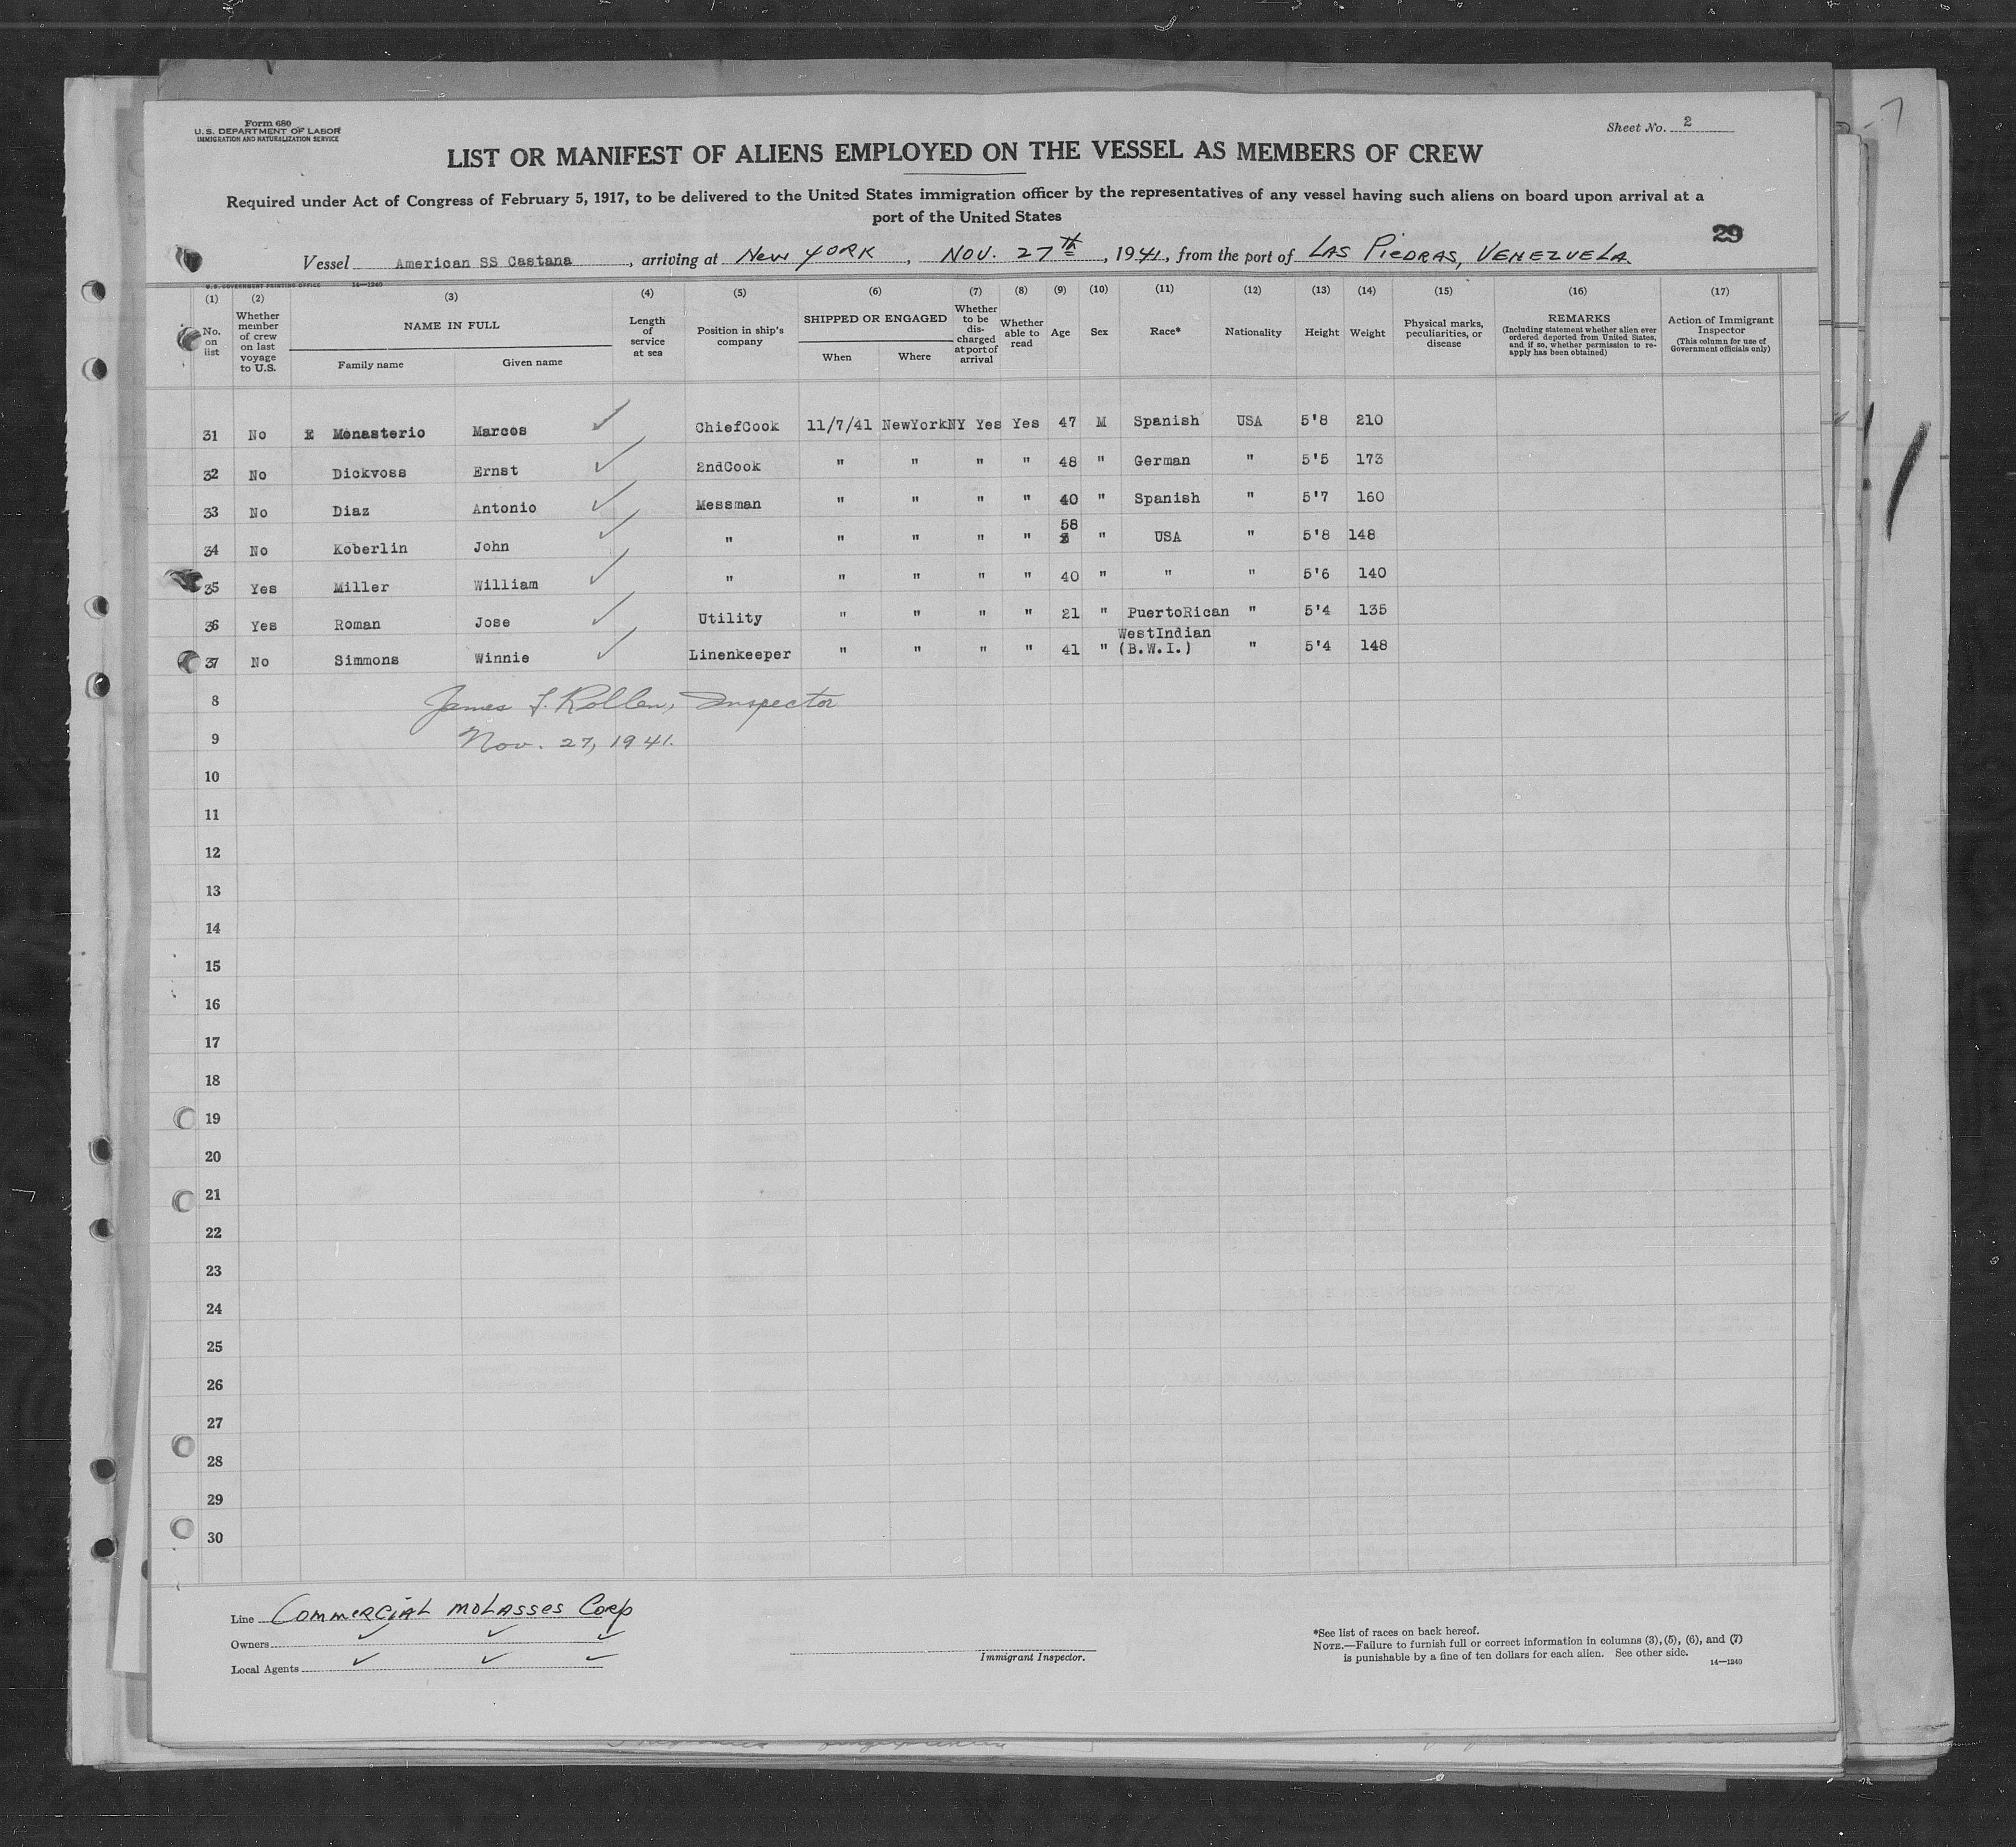 Form 680
U. S. DEPARTMENT OF LABOR
IMMIGRATION AND NATURALIZATION SERVICE
Sheet No. 2
LIST OR MANIFEST OF ALIENS EMPLOYED ON THE VESSEL AS MEMBERS OF CREW
Required under Act of Congress of February 5, 1917, to be delivered to the United States immigration officer by the representatives of any vessel having such aliens on board upon arrival at a
port of the United States
29
Vessel American SS Castana, arriving at New YORK, NOV. 27th, 1941, from the port of LAS PIEDRAS, VENEZUELA.
U.S. GOVERNMENT PRINTING OFFICE 14—1240
(1) (2) (3) (4) (5) (6) (7) (8) (9) (10) (11) (12) (13) (14) (15) (16) (17)
No. on list
Whether member of crew on last voyage to U.S.
NAME IN FULL
Family name Given name
Length of service at sea
Position in ship's company
SHIPPED OR ENGAGED
When Where
Whether to be dis-charged at port of arrival
Whether able to read
Age
Sex
Race*
Nationality
Height
Weight
Physical marks, peculiarities, or disease
REMARKS
(Including statement whether alien ever ordered deported from United States, and if so, whether permission to re-apply has been obtained)
Action of Immigrant Inspector
(This column for use of Government officials only)
31 No X Monasterio Marcos ✓ ChiefCook 11/7/41 NewYorkNY Yes Yes 47 M Spanish USA 5'8 210
32 No Dickvoss Ernst ✓ 2ndCook " " " " 48 " German " 5'5 173
33 No Diaz Antonio ✓ Messman " " " " 40 " Spanish " 5'7 160
34 No Koberlin John ✓ " " " " " 58 " USA " 5'8 148
35 Yes Miller William ✓ " " " " " 40 " " " 5'6 140
36 Yes Roman Jose ✓ Utility " " " " 21 " PuertoRican " 5'4 135
37 No Simmons Winnie ✓ Linenkeeper " " " " 41 " WestIndian (B.W.I.) " 5'4 148
8 James F. Rollen, Inspector
9 Nov. 27, 1941.
10
11
12
13
14
15
16
17
18
19
20
21
22
23
24
25
26
27
28
29
30
Line COMMERCIAL MOLASSES Corp
Owners ✓ ✓ ✓
Local Agents ✓ ✓ ✓
Immigrant Inspector.
*See list of races on back hereof.
NOTE.—Failure to furnish full or correct information in columns (3), (5), (6), and (7)
is punishable by a fine of ten dollars for each alien. See other side.
14—1240